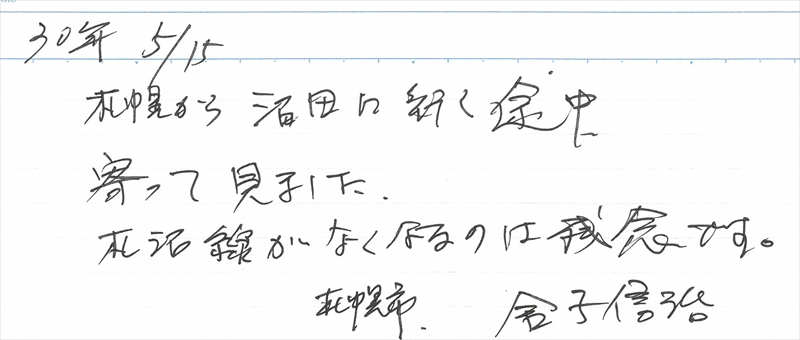 30年 5/15
札幌から 沼田に行く途中
寄って見ました.
札沼線がなくなるのは残念です。
札幌市. 金子信治